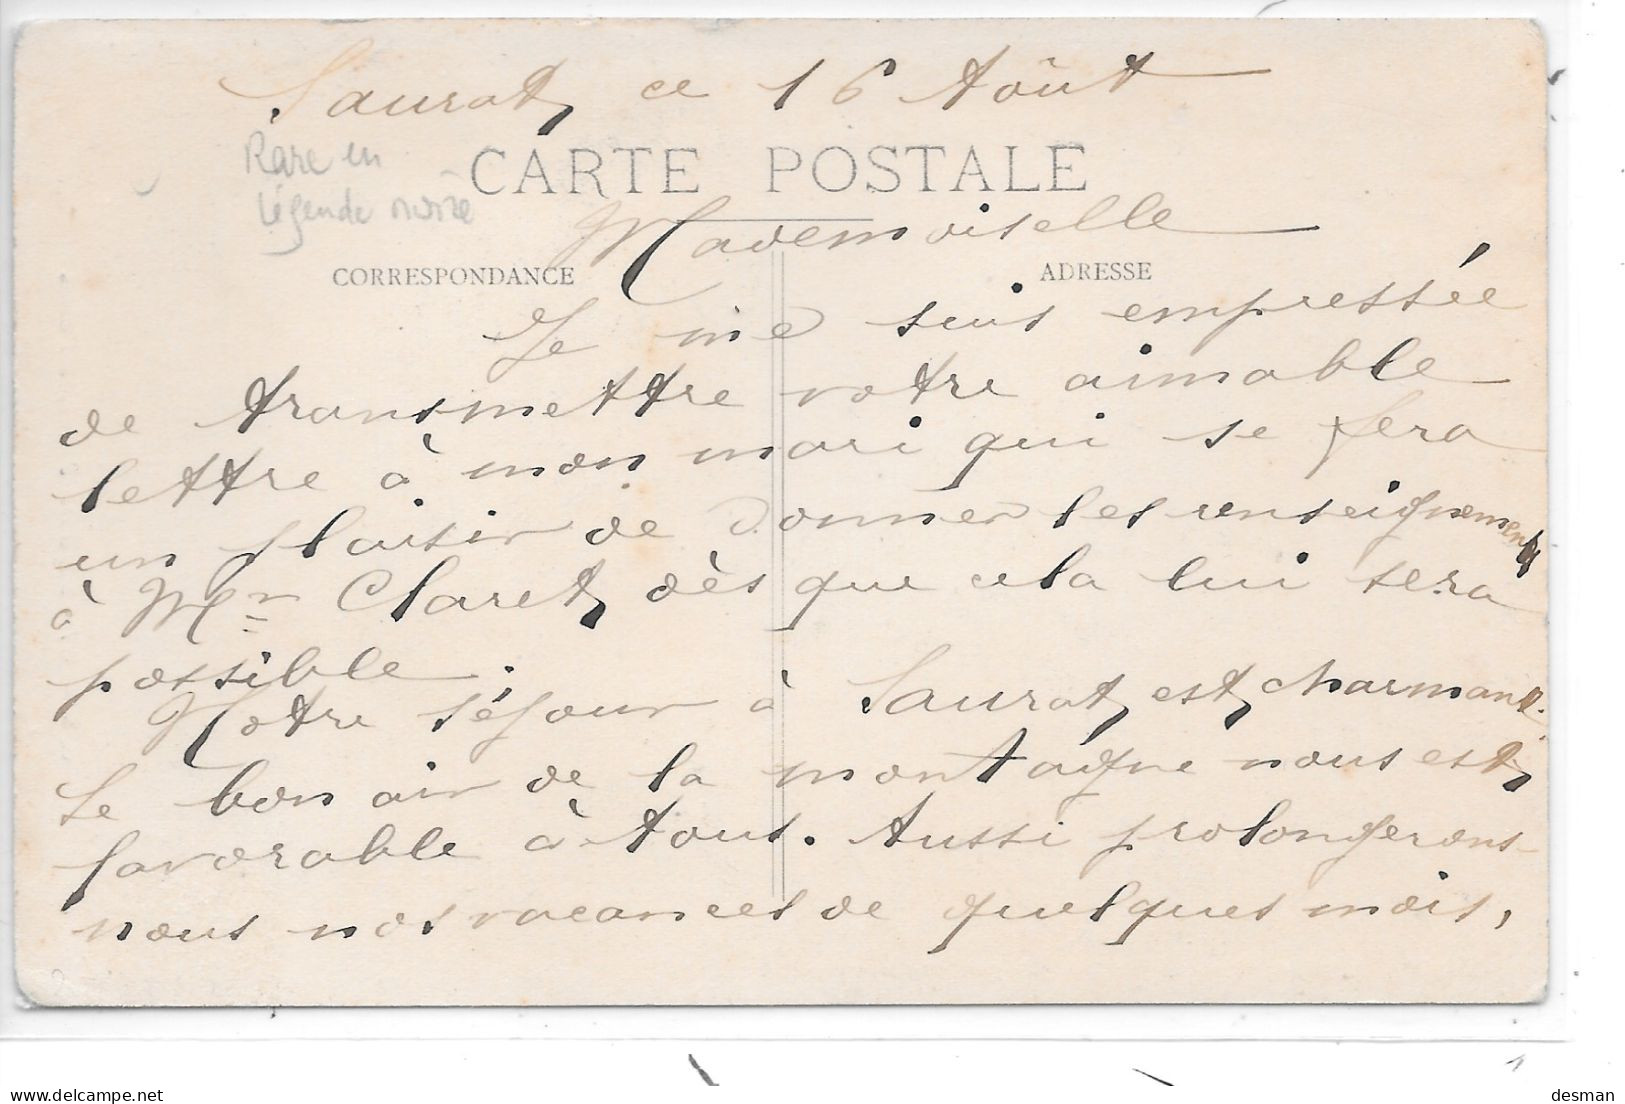 Saurat ce 16 Août
Rare en
légende noire
CARTE POSTALE
Mademoiselle
CORRESPONDANCE
ADRESSE
Je me suis empressée
de transmettre votre aimable
lettre à mon mari qui se fera
un plaisir de donner les renseignements
à Mr Claret dès que cela lui sera
possible.
Notre séjour à Saurat est charmant.
Le bon air de la montagne nous est
favorable à tous. Aussi prolongerons-
nous nos vacances de quelques mois,
delcampe.net
desman